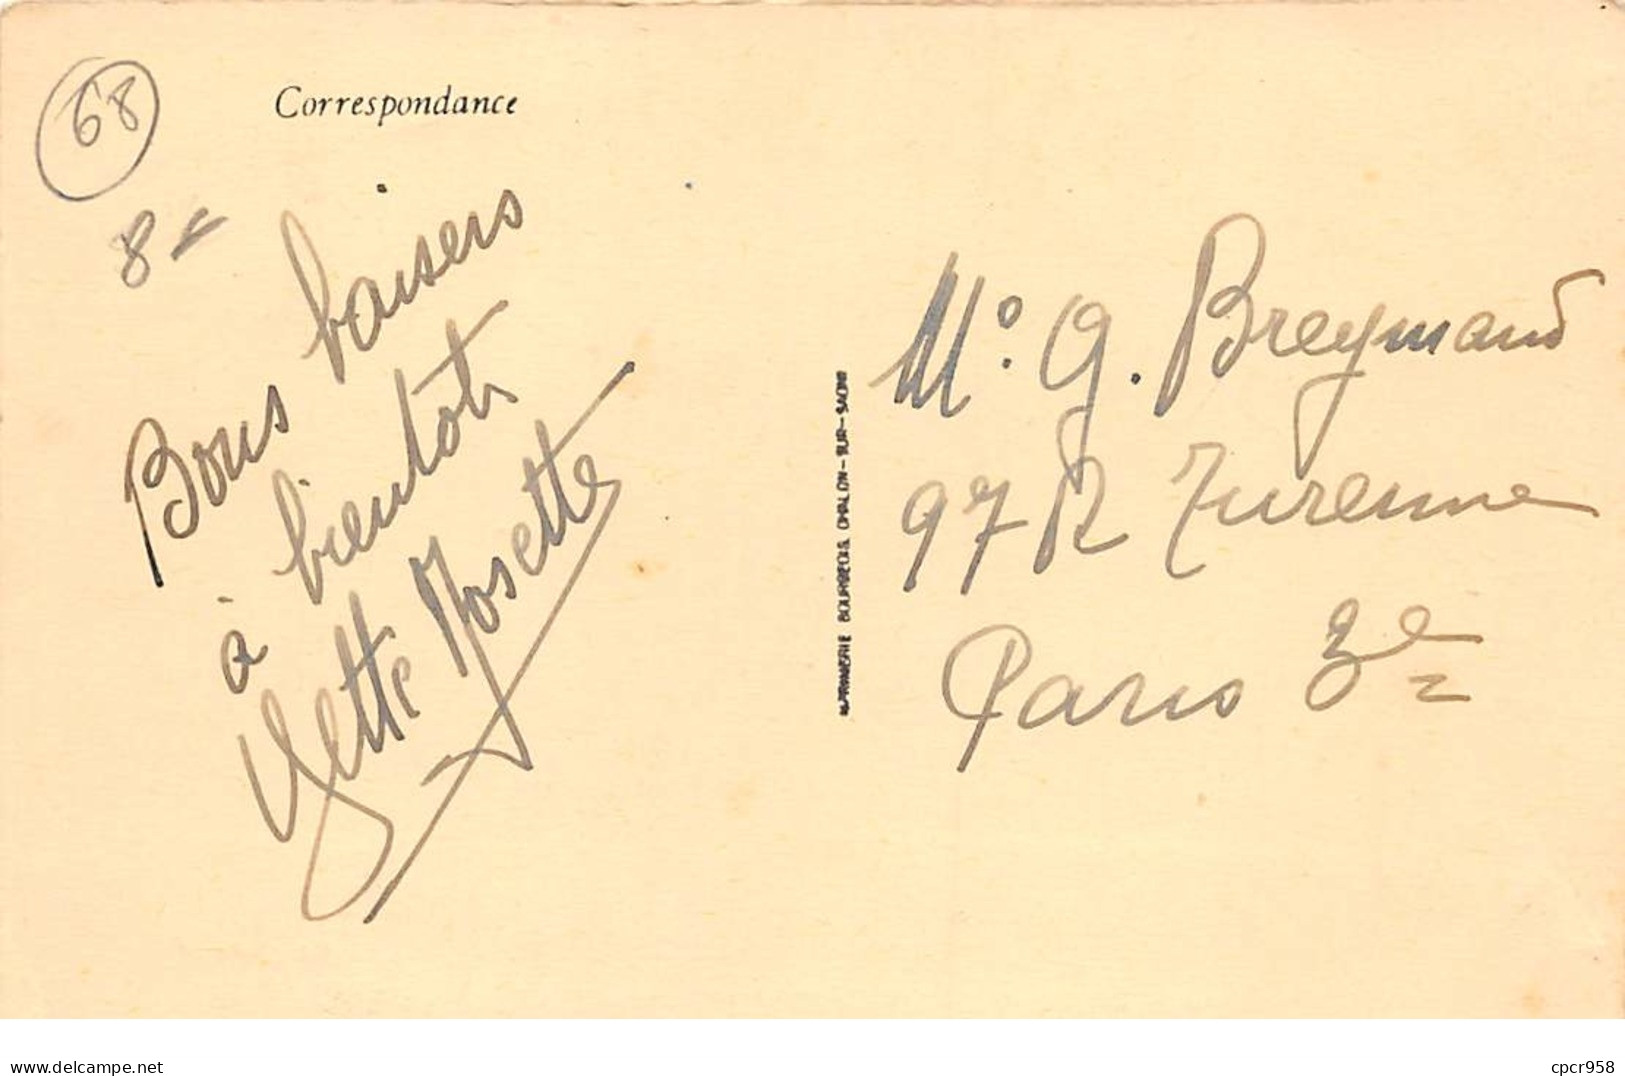 68
Correspondance
8=
Bons baisers
à bientôt
Yette Mosette
IMPRIMERIE BOURGEOIS, CHALON-SUR-SAONE
Mr. G. Breymand
97 R Turenne
Paris 3e
delcampe.net
cpcr958